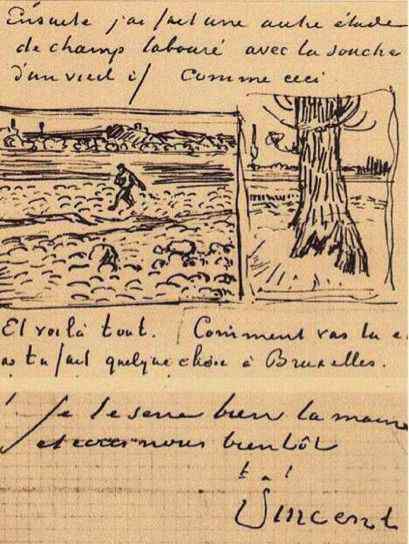 Ensuite j'ai fait une autre étude
de champ labouré avec la souche
d'un vieil if comme ceci
Et voilà tout. Comment vas tu e
as tu fait quelque chose à Bruxelles.
Je te serre bien la main
et écris nous bientôt
t. à t.
Vincent